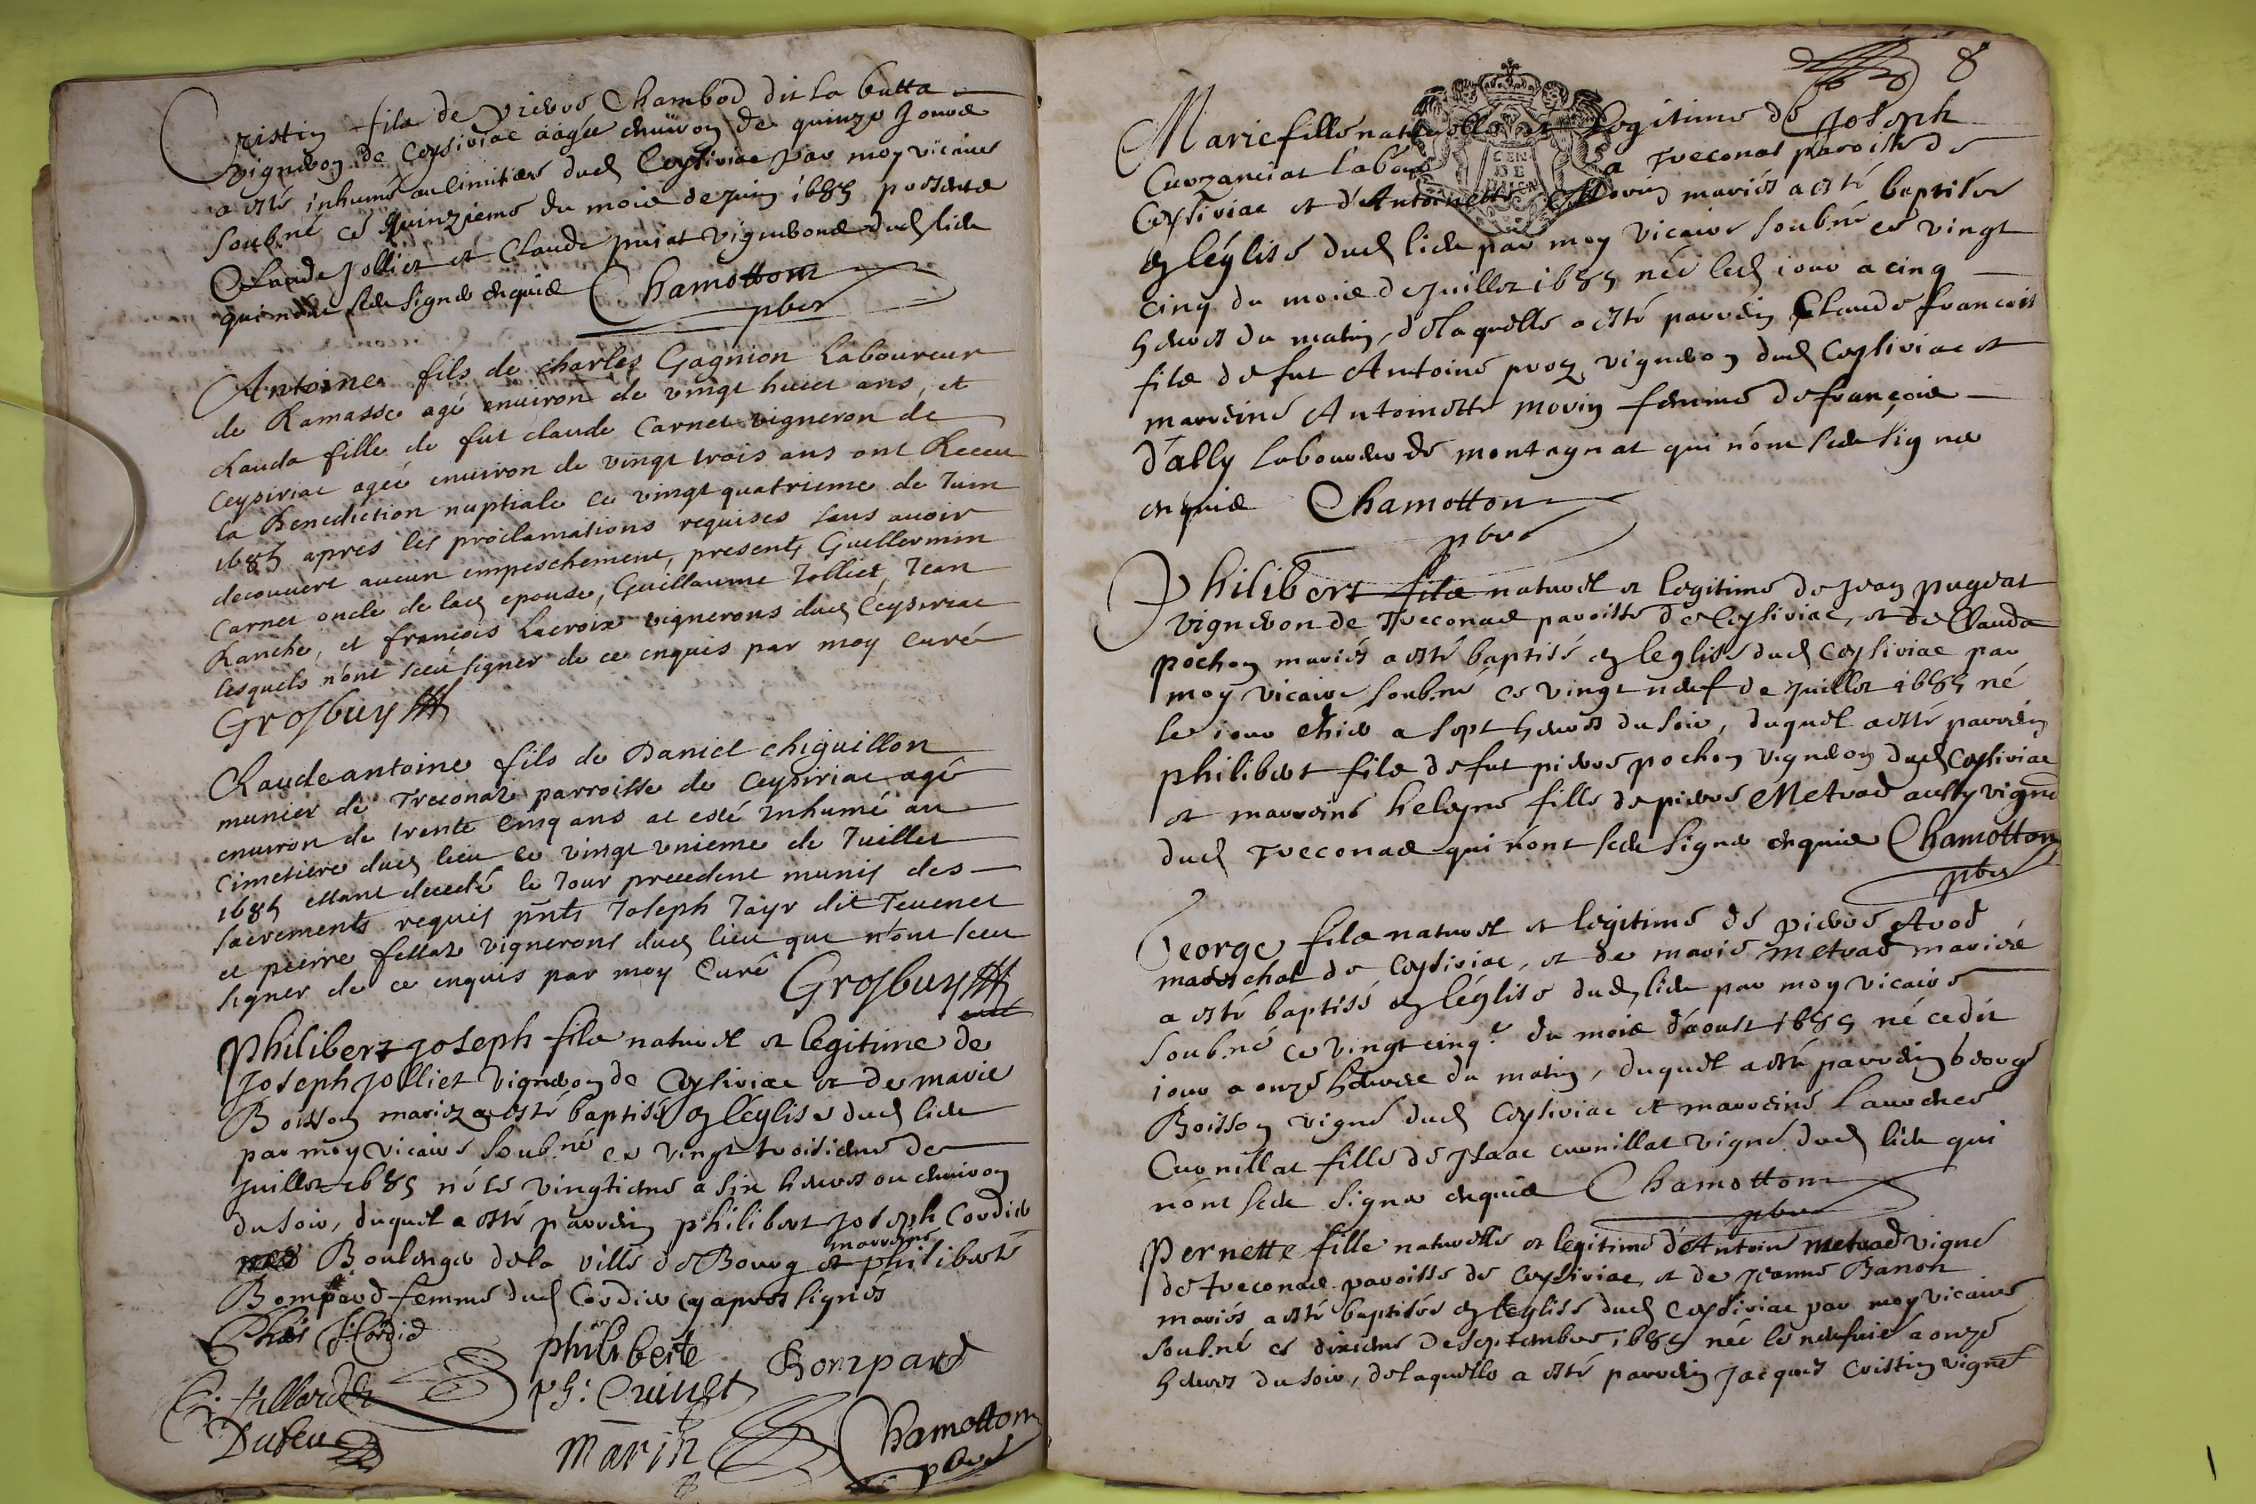 Cristin fils de Pierre Chambod dit la butta
vigneron de Ceysiriac aagée environ de quinze Jours
a esté inhumé au cimitiere dud Ceysiriac par moy vicaire
soub.né ce quinzieme du mois de juin 1685 presents
Claude Jolliet et Claude puiat vignerons dud lieu
qui n'ont sceu signer enquis Chamotton
pber
Antoine fils de charles Gagnion Laboureur
de Ramasse agé environ de vingt huict ans, et
Clauda fille de fut claude Carnet vigneron de
Ceysiriac agée environ de vingt trois ans ont Receu
la Benediction nuptiale ce vingt quatrieme de Juin
1685 apres les proclamations requises sans avoir
decouvert aucun empeschement, presents Guillermin
Carnet oncle de lad epouse, Guillaume Jolliet, Jean
Ranche, et francois Lacroix vignerons dud Ceysiriac
lesquels n'ont sceu signer de ce enquis par moy curé
Grosbuy
Claude antoine fils de Daniel chiguillon
munier de Treconaz parroisse de Ceysiriac agé
environ de trente cinq ans at esté Inhumé au
Cimetiere dud lieu le vingt unieme de Juillet
1685 estant decedé le Jour precedent munis des
sacrements requis pnts Joseph Jayr dit Tevenet
et pierre fellaz vignerons dud lieu que n'ont sceu
signer de ce enquis par moy Curé Grosbuy
Philibert joseph fils naturel et legitime de
Joseph Jolliet vigneron de Ceysiriac et de marie
Boisson mariez a esté baptisé en l'églises dud lieu
par moy vicaire soub.né ce vingt troisieme de
Juillet 1685 né le vingtieme a six heures ou environ
du soir, duquel a esté parrein philibert Joseph Cordier
Boulenger de la ville de Bourg et philiberte
marreine
Bompard femme dud Cordier cy apres signés
philiberte Bompard
Marin
Chamotton
pber
8
Marie fille naturelle et legitime de Joseph
Curzanciat a Treconas paroisse de
Ceysiriac et d'Antoinette Morin mariés a esté baptisée
en l'église dud lieu par moy vicaire soub.né ce vingt
cinq du mois de juillet 1685 née led jour a cinq
heures du matin, de laquelle a esté parrein Claude francois
fils de fut Antoine proz vigneron dud Ceysiriac et
marreine Antoinette morin femme de françois
d'ally laboureur de montagnat qui n'ont sceu signer
enquis Chamotton
pbre
Philibert fils naturel et legitime de Jean pugeat
vigneron de Treconas paroisse de Ceysiriac, et de Clauda
pochon mariés a esté baptisé en leglise dud Ceysiriac par
moy vicaire soub.né ce vingt neuf de Juillet 1685 né
le iour d'hier a sept heures du soir, duquel a esté parrein
philibert fils de fut pierre pochon vigneron dud Ceysiriac
et marreine heleyne fille de pierre Metrad aussy vign
dud Treconas qui n'ont sceu signer enquis Chamotton
pber
George fils naturel et legitime de pierre
mareschal de Ceysiriac, et de marie metrad mariés
a esté baptisé en l'église dud lieu par moy vicaire
soub.né ce vingt cinq.e du mois d'aoust 1685 né cedit
iour a onze heures du matin, duquel a esté parrein George
Boisson vigné dud Ceysiriac et marreine Laurence
Curnillat fille de Isaac curnillat vigné. dud lieu qui
n'ont sceu signer enquis Chamotton
pber
Pernette fille naturelle et legitime d'Antoine metrad vigné
de treconas paroisse de Ceysiriac et de Jeanne Banon
mariés a esté baptisée en leglise dud Ceysiriac par moy vicaire
soub.né ce dixieme de septembre 1685 née le neufvie a onze
heures du soir, de laquelle a esté parrein Jacques Cristin vigne